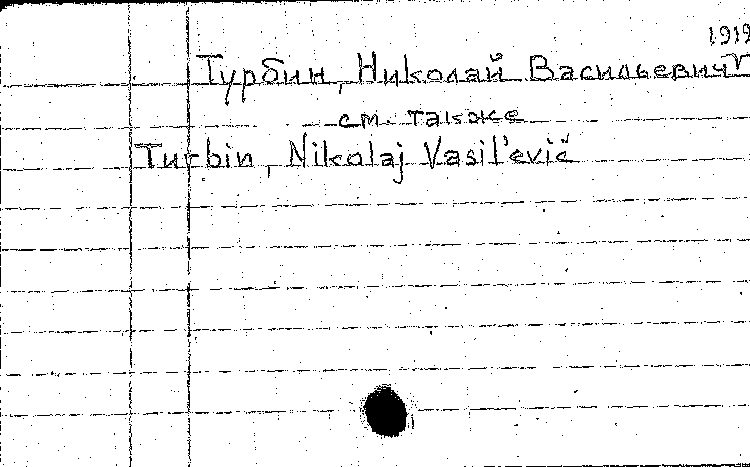 1919
Турбин, Николай Васильевич
см. также
Turbin, Nikolaj Vasil'evič